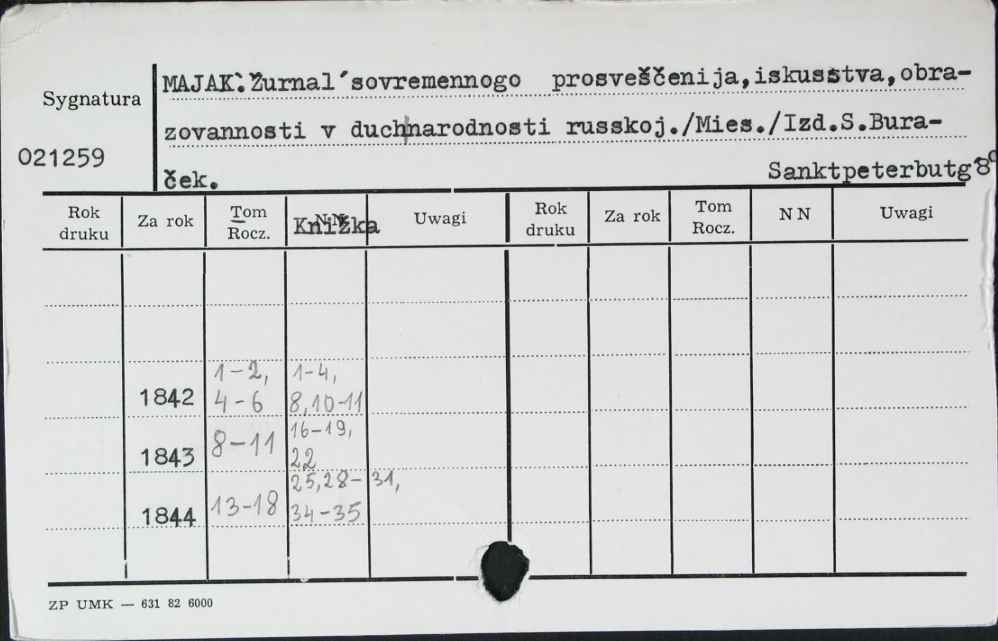 MAJAK. Žurnal´sovremennogo prosveščenija,iskusstva,obra-
Sygnatura
zovannosti v duchnarodnosti russkoj./Mies./Izd.S.Bura-
021259
ček. Sanktpeterbutg 8°
Rok druku Za rok Tom Rocz. Knižka Uwagi Rok druku Za rok Tom Rocz. NN Uwagi
1-2, 1-4,
1842 4-6 8,10-11
16-19,
1843 8-11 22
25,28-31,
1844 13-18 34-35
ZP UMK — 631 82 6000